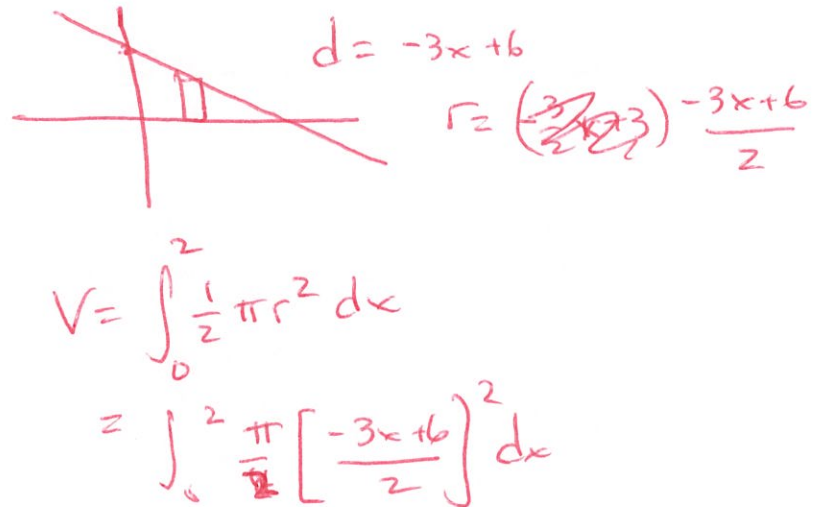 d = -3x+6
r= -3x+6/2
V= ∫₀² 1/2 πr² dx
= ∫₀² π/2 [-3x+6/2]² dx